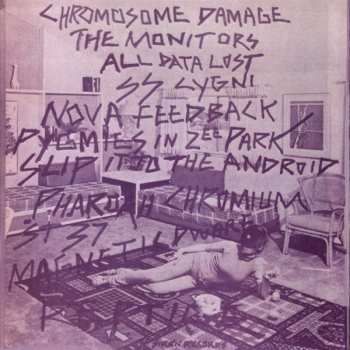 CHROMOSOME DAMAGE
THE MONITORS
ALL DATA LOST
SS CYGNI
NOVA FEEDBACK
PYGMIES IN ZEE PARK
SLIP IT TO THE ANDROID
PHAROAH CHROMIUM
ST 37
MAGNETIC DWARF
REPTILE
SIREN RECORDS